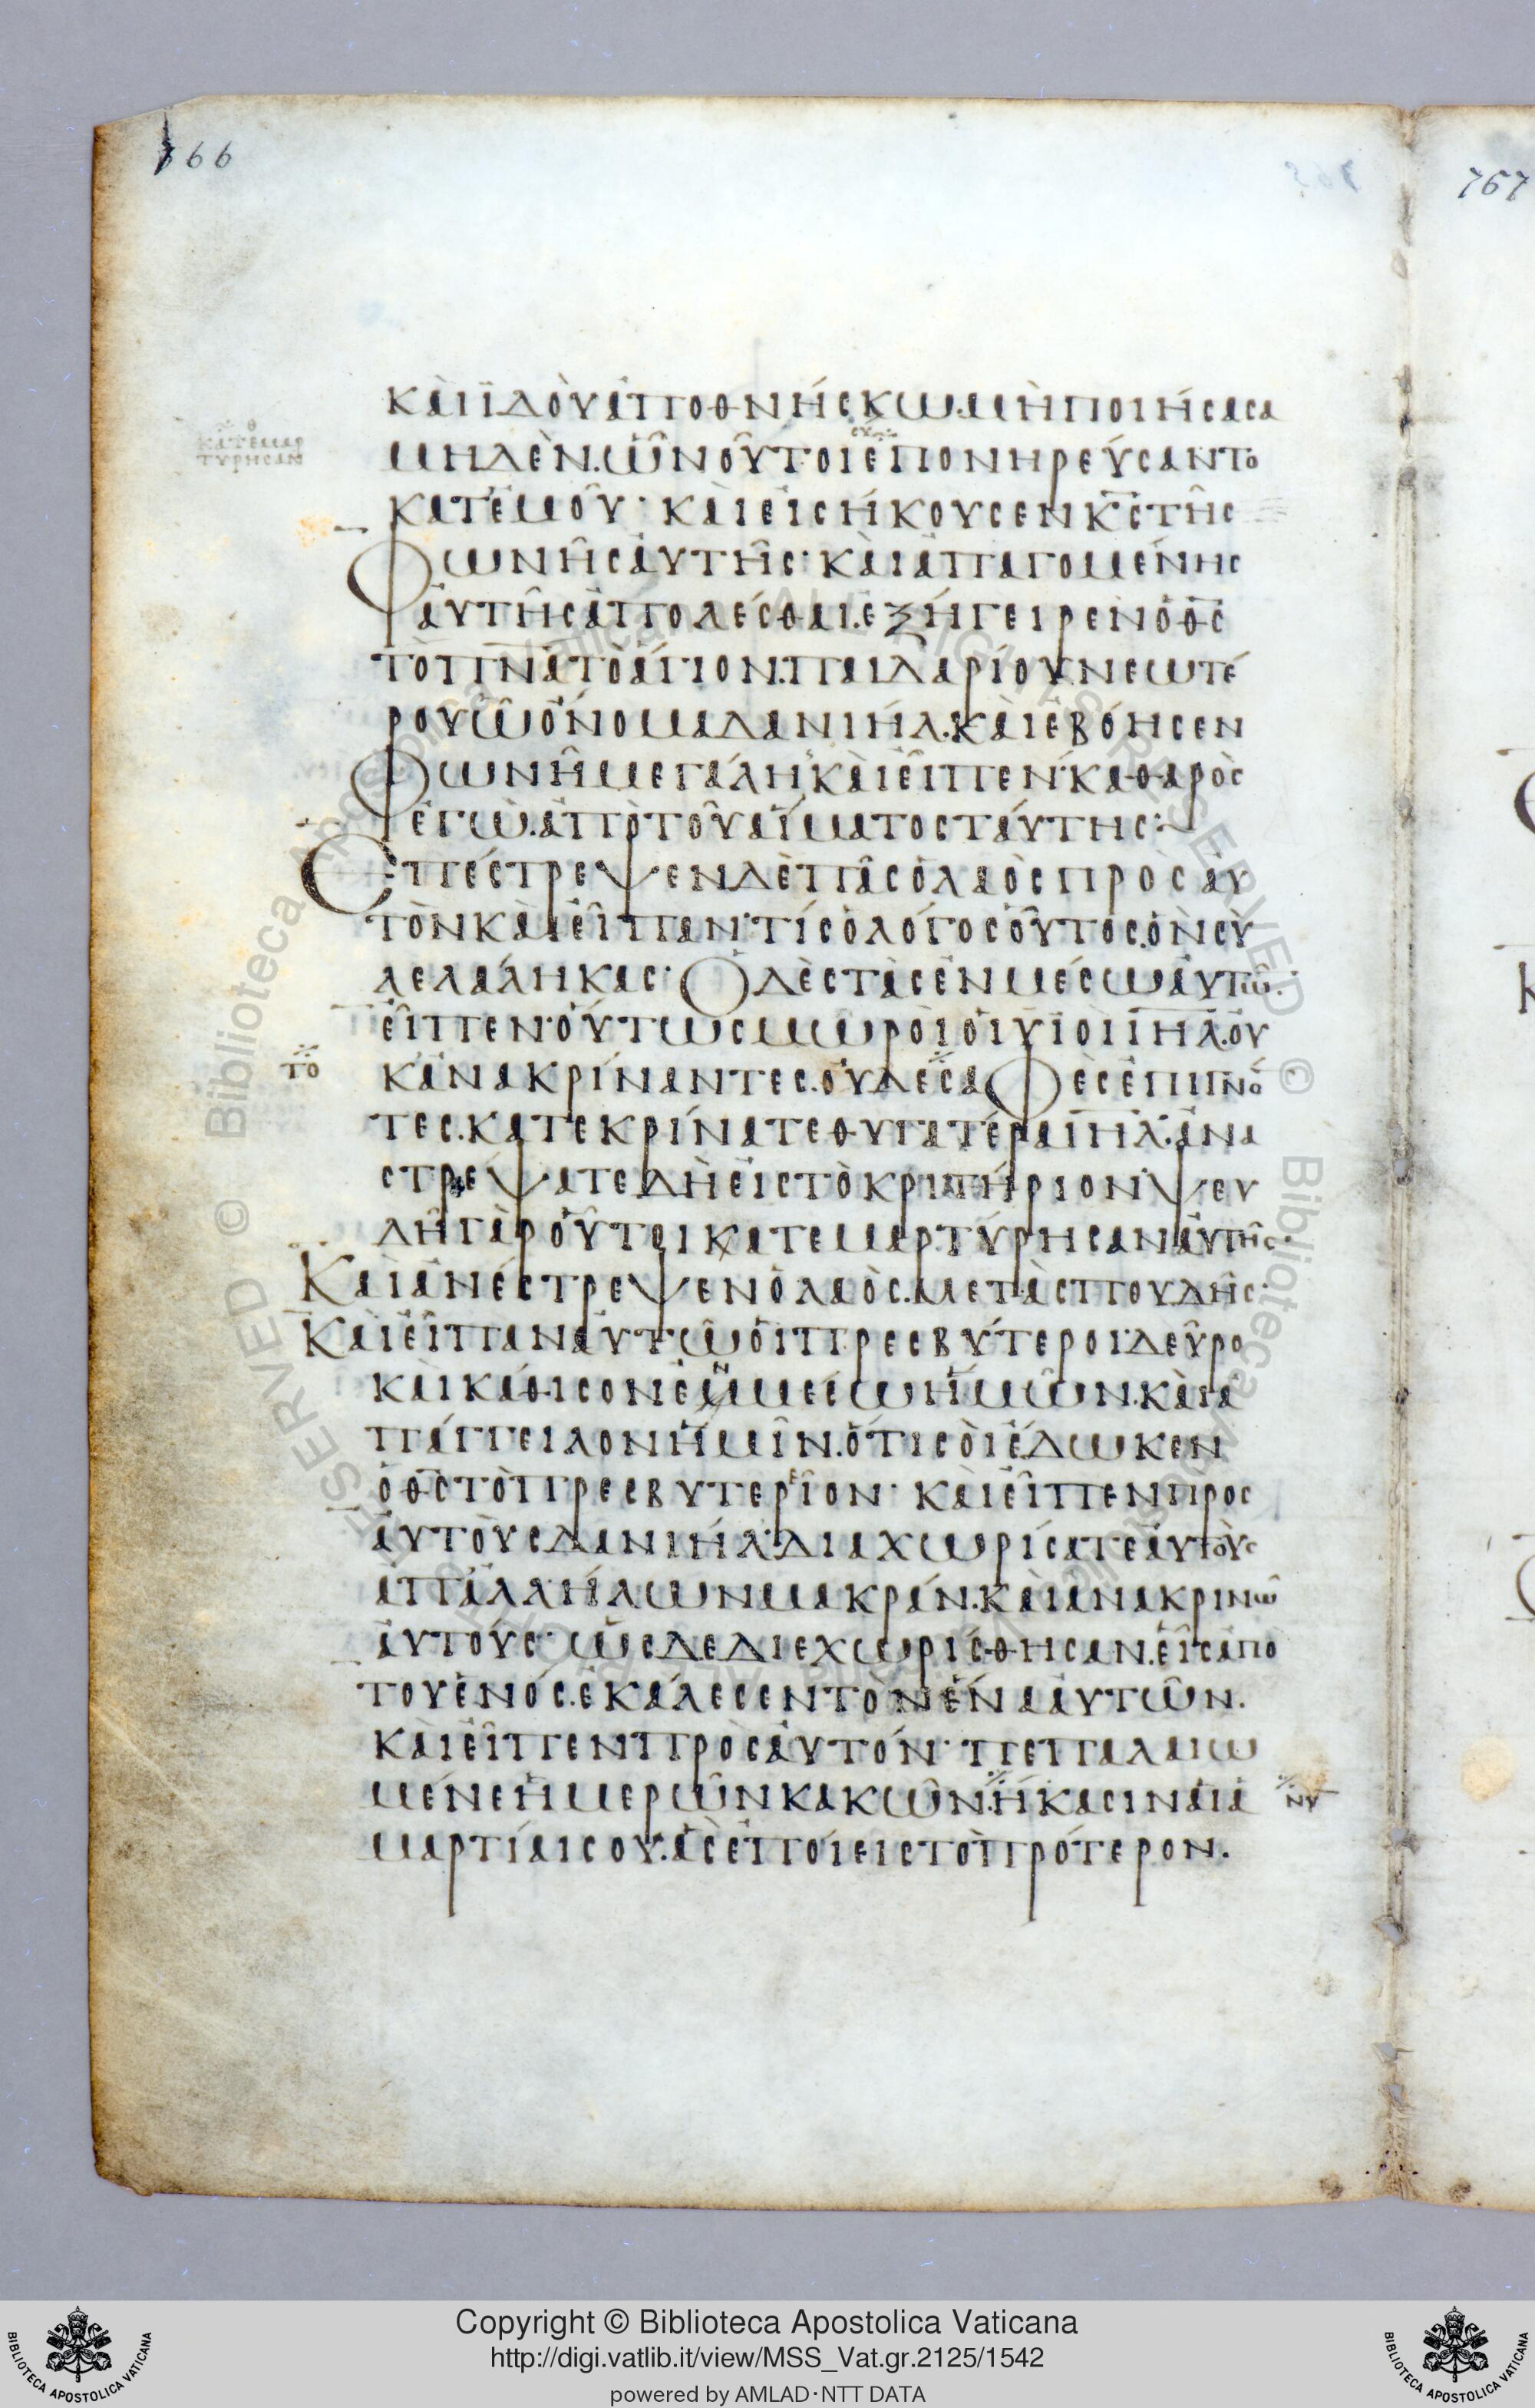 766
767
ΚΑΙΙΔΟΥΑΠΟΘΝΗϹΚΩΜΗΠΟΙΗϹΑϹΑ
ΚΑΤΕΜΑΡ
ΤΥΡΗϹΑΝ
ΜΗΔΕΝ.ΩΝΟΥΤΟΙΕΠΟΝΗΡΕΥϹΑΝΤΟ
ΚΑΤΕΜΟΥ· ΚΑΙΕΙϹΗΚΟΥϹΕΝΚ̅Ϲ̅ΤΗϹ
ΦΩΝΗϹΑΥΤΗϹ· ΚΑΙΑΠΑΓΟΜΕΝΗϹ
ΑΥΤΗϹΑΠΟΛΕϹΘΑΙ.ΕΞΗΓΕΙΡΕΝΟΘ̅Ϲ̅
ΤΟΠ̅Ν̅Α̅ΤΟΑΓΙΟΝ.ΠΑΙΔΑΡΙΟΥΝΕΩΤΕ
ΡΟΥΩΟΝΟΜΑΔΑΝΙΗΛ.ΚΑΙΕΒΟΗϹΕΝ
ΦΩΝΗΜΕΓΑΛΗΚΑΙΕΙΠΕΝ·ΚΑΘΑΡΟϹ
ΕΓΩ.ΑΠΟΤΟΥΑΙΜΑΤΟϹΤΑΥΤΗϹ:~
ΕΠΕϹΤΡΕΨΕΝΔΕΠΑϹΟΛΑΟϹΠΡΟϹΑΥ
ΤΟΝΚΑΙΕΙΠΑΝ·ΤΙϹΟΛΟΓΟϹΟΥΤΟϹ.ΟΝϹΥ
ΛΕΛΑΛΗΚΑϹ· ΟΔΕϹΤΑϹΕΝΜΕϹΩΑΥΤΩ.
ΕΙΠΕΝ·ΟΥΤΩϹΜΩΡΟΙΟΙΥΙΟΙΙ̅Η̅Λ̅.ΟΥ
ΤΟ
ΚΑΝΑΚΡΙΝΑΝΤΕϹ.ΟΥΔΕϹΑΦΕϹΕΠΙΓΝΟ
ΤΕϹ.ΚΑΤΕΚΡΙΝΑΤΕΘΥΓΑΤΕΡΑΙ̅Η̅Λ̅.ΑΝΑ
ϹΤΡΕΨΑΤΕΔΗΕΙϹΤΟΚΡΙΤΗΡΙΟΝ·ΨΕΥ
ΔΗΓΑΡΟΥΤΟΙΚΑΤΕΜΑΡΤΥΡΗϹΑΝΑΥΤΗϹ·
ΚΑΙΑΝΕϹΤΡΕΨΕΝΟΛΑΟϹ.ΜΕΤΑϹΠΟΥΔΗϹ·
ΚΑΙΕΙΠΑΝΑΥΤΩΟΙΠΡΕϹΒΥΤΕΡΟΙ·ΔΕΥΡΟ
ΚΑΙΚΑΘΙϹΟΝΕΜΜΕϹΩΗΜΩΝ.ΚΑΙΑ
ΠΑΓΓΕΙΛΟΝΗΜΙΝ.ΟΤΙϹΟΙΕΔΩΚΕΝ
ΟΘ̅Ϲ̅ΤΟΠΡΕϹΒΥΤΕΡΙΟΝ· ΚΑΙΕΙΠΕΝΠΡΟϹ
ΑΥΤΟΥϹΔΑΝΙΗΛ·ΔΙΑΧΩΡΙϹΑΤΕΑΥΤΟΥϹ
ΑΠΑΛΛΗΛΩΝΜΑΚΡΑΝ.ΚΑΙΑΝΑΚΡΙΝΩ
ΑΥΤΟΥϹ· ΩϹΔΕΔΙΕΧΩΡΙϹΘΗϹΑΝ.ΕΙϹΑΠΟ
ΤΟΥΕΝΟϹ.ΕΚΑΛΕϹΕΝΤΟΝΕΝΑΑΥΤΩΝ.
ΚΑΙΕΙΠΕΝΠΡΟϹΑΥΤΟΝ· ΠΕΠΑΛΑΙΩ
ΜΕΝΕΗΜΕΡΩΝΚΑΚΩΝ.ΗΚΑϹΙΝΑΙΑ
ΝΥ
ΜΑΡΤΙΑΙϹΟΥ.ΑϹΕΠΟΙΕΙϹΤΟΠΡΟΤΕΡΟΝ.
Copyright © Biblioteca Apostolica Vaticana
http://digi.vatlib.it/view/MSS_Vat.gr.2125/1542
powered by AMLAD·NTT DATA
BIBLIOTECA APOSTOLICA VATICANA
BIBLIOTECA APOSTOLICA VATICANA